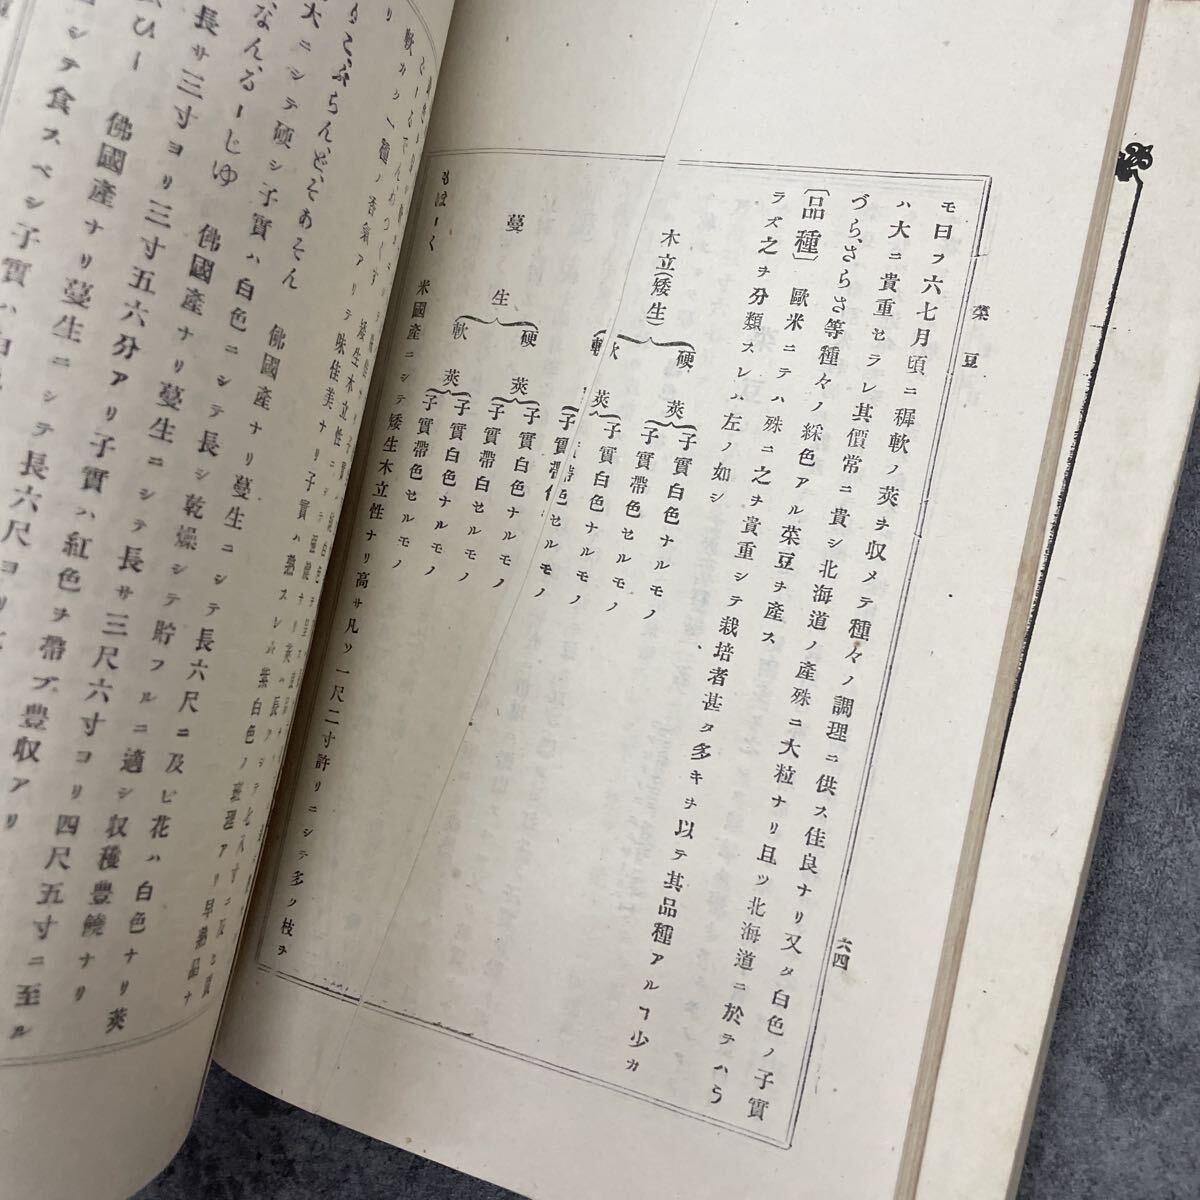 菜豆
六四
モ曰フ六七月頃ニ穉軟ノ莢ヲ収メテ種々ノ調理ニ供ス佳良ナリ又タ白色ノ子實
ハ大ニ貴重セラレ其價常ニ貴シ北海道ノ産殊ニ大粒ナリ且ツ北海道ニ於テハう
づら、さらさ等種々ノ綵色アル菜豆ヲ産ス
〔品種〕歐米ニテハ殊ニ之ヲ貴重シテ栽培者甚タ多キヲ以テ其品種アルヿ少カ
ラズ之ヲ分類スレハ左ノ如シ
木立(矮生)
硬莢
子實白色ナルモノ
子實帶色セルモノ
軟莢
子實白色ナルモノ
子實帶色セルモノ
蔓生
硬莢
子實白色ナルモノ
子實帶白セルモノ
軟莢
子實白色ナルモノ
子實帶色セルモノ
もほーく 米國産ニシテ矮生木立性ナリ高サ凡ソ一尺二寸許リニシテ多ク枝ヲ
軟カシ一種ノ香氣アリテ味佳美ナリ子實ハ
こぶらんど、そあそん 佛國産ナリ蔓生ニシテ長六尺ニ及ビ花ハ白色ナリ莢
大ニシテ硬シ子實ハ白色ニシテ長シ乾燥シテ貯フルニ適シ収穫豊饒ナリ
なん、るーじゆ 佛國産ナリ蔓生ニシテ長サ三尺六寸ヨリ四尺五寸ニ至ル
長サ三寸ヨリ三寸五六分アリ子實ハ紅色ヲ帶ブ豊収アリ
ひー 佛國産ナリ蔓生ニシテ長六尺ヨリ
シテ食スベシ子實ハ白